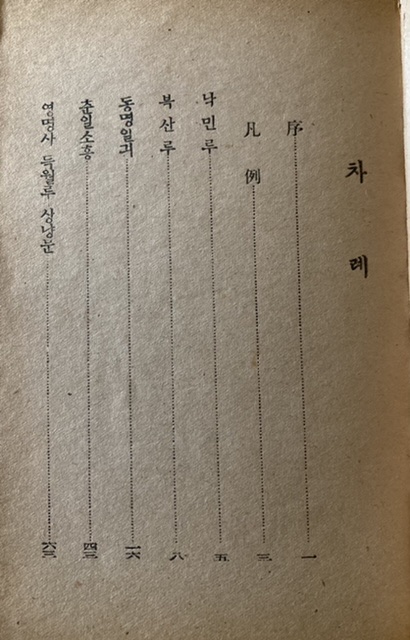 차례
序 一
凡例 三
낙민루 五
북산루 八
동명일긔 一六
춘일소흥 四三
영명사 득월루 상냥문 六三